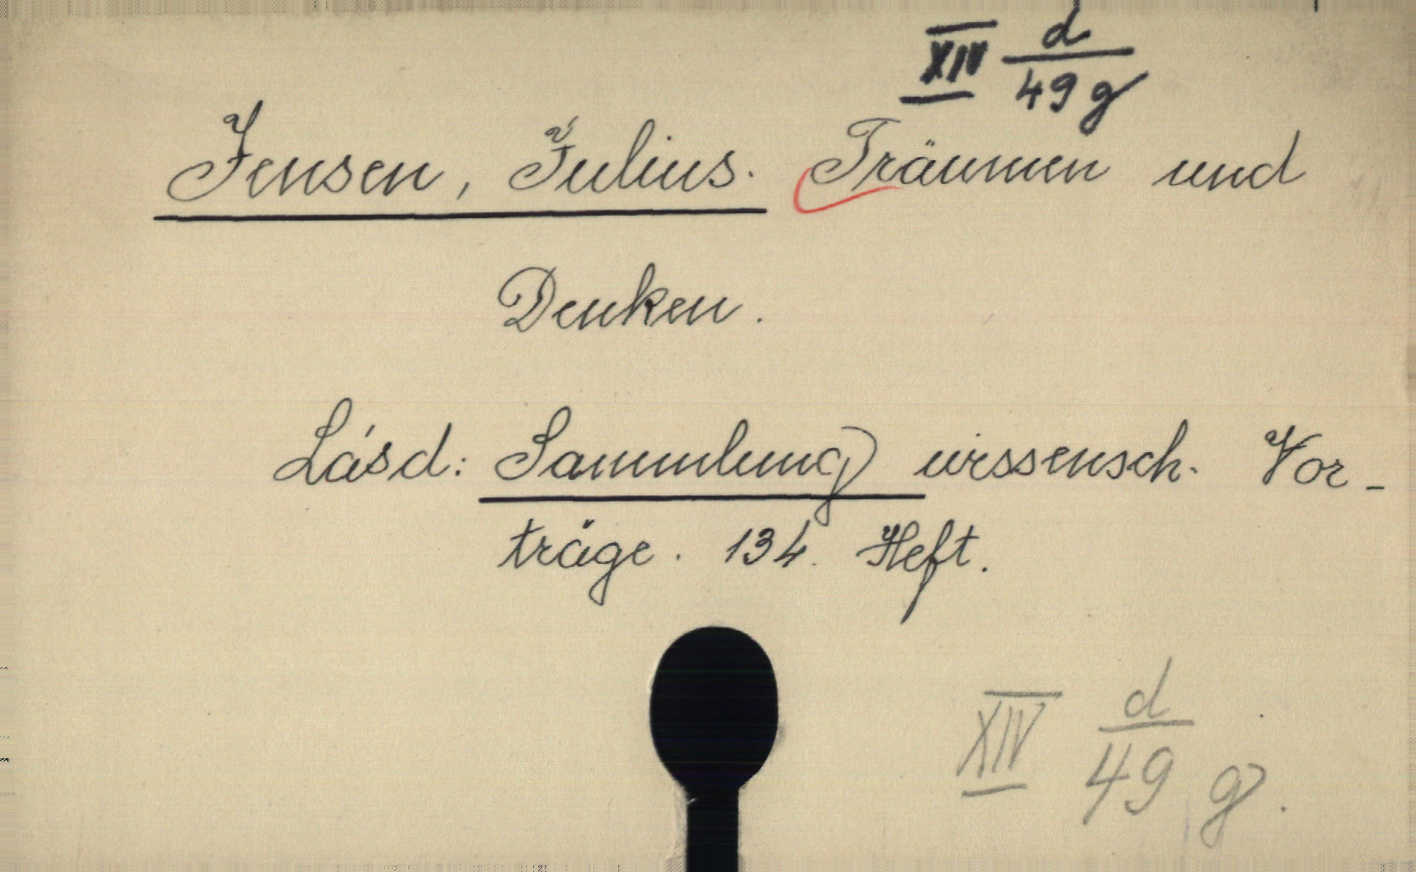 XIV d/49 g
Jensen, Julius. Träumen und
Denken.
Lásd: Sammlung wissensch. Vor-
träge. 134. Heft.
XIV d/49 g.